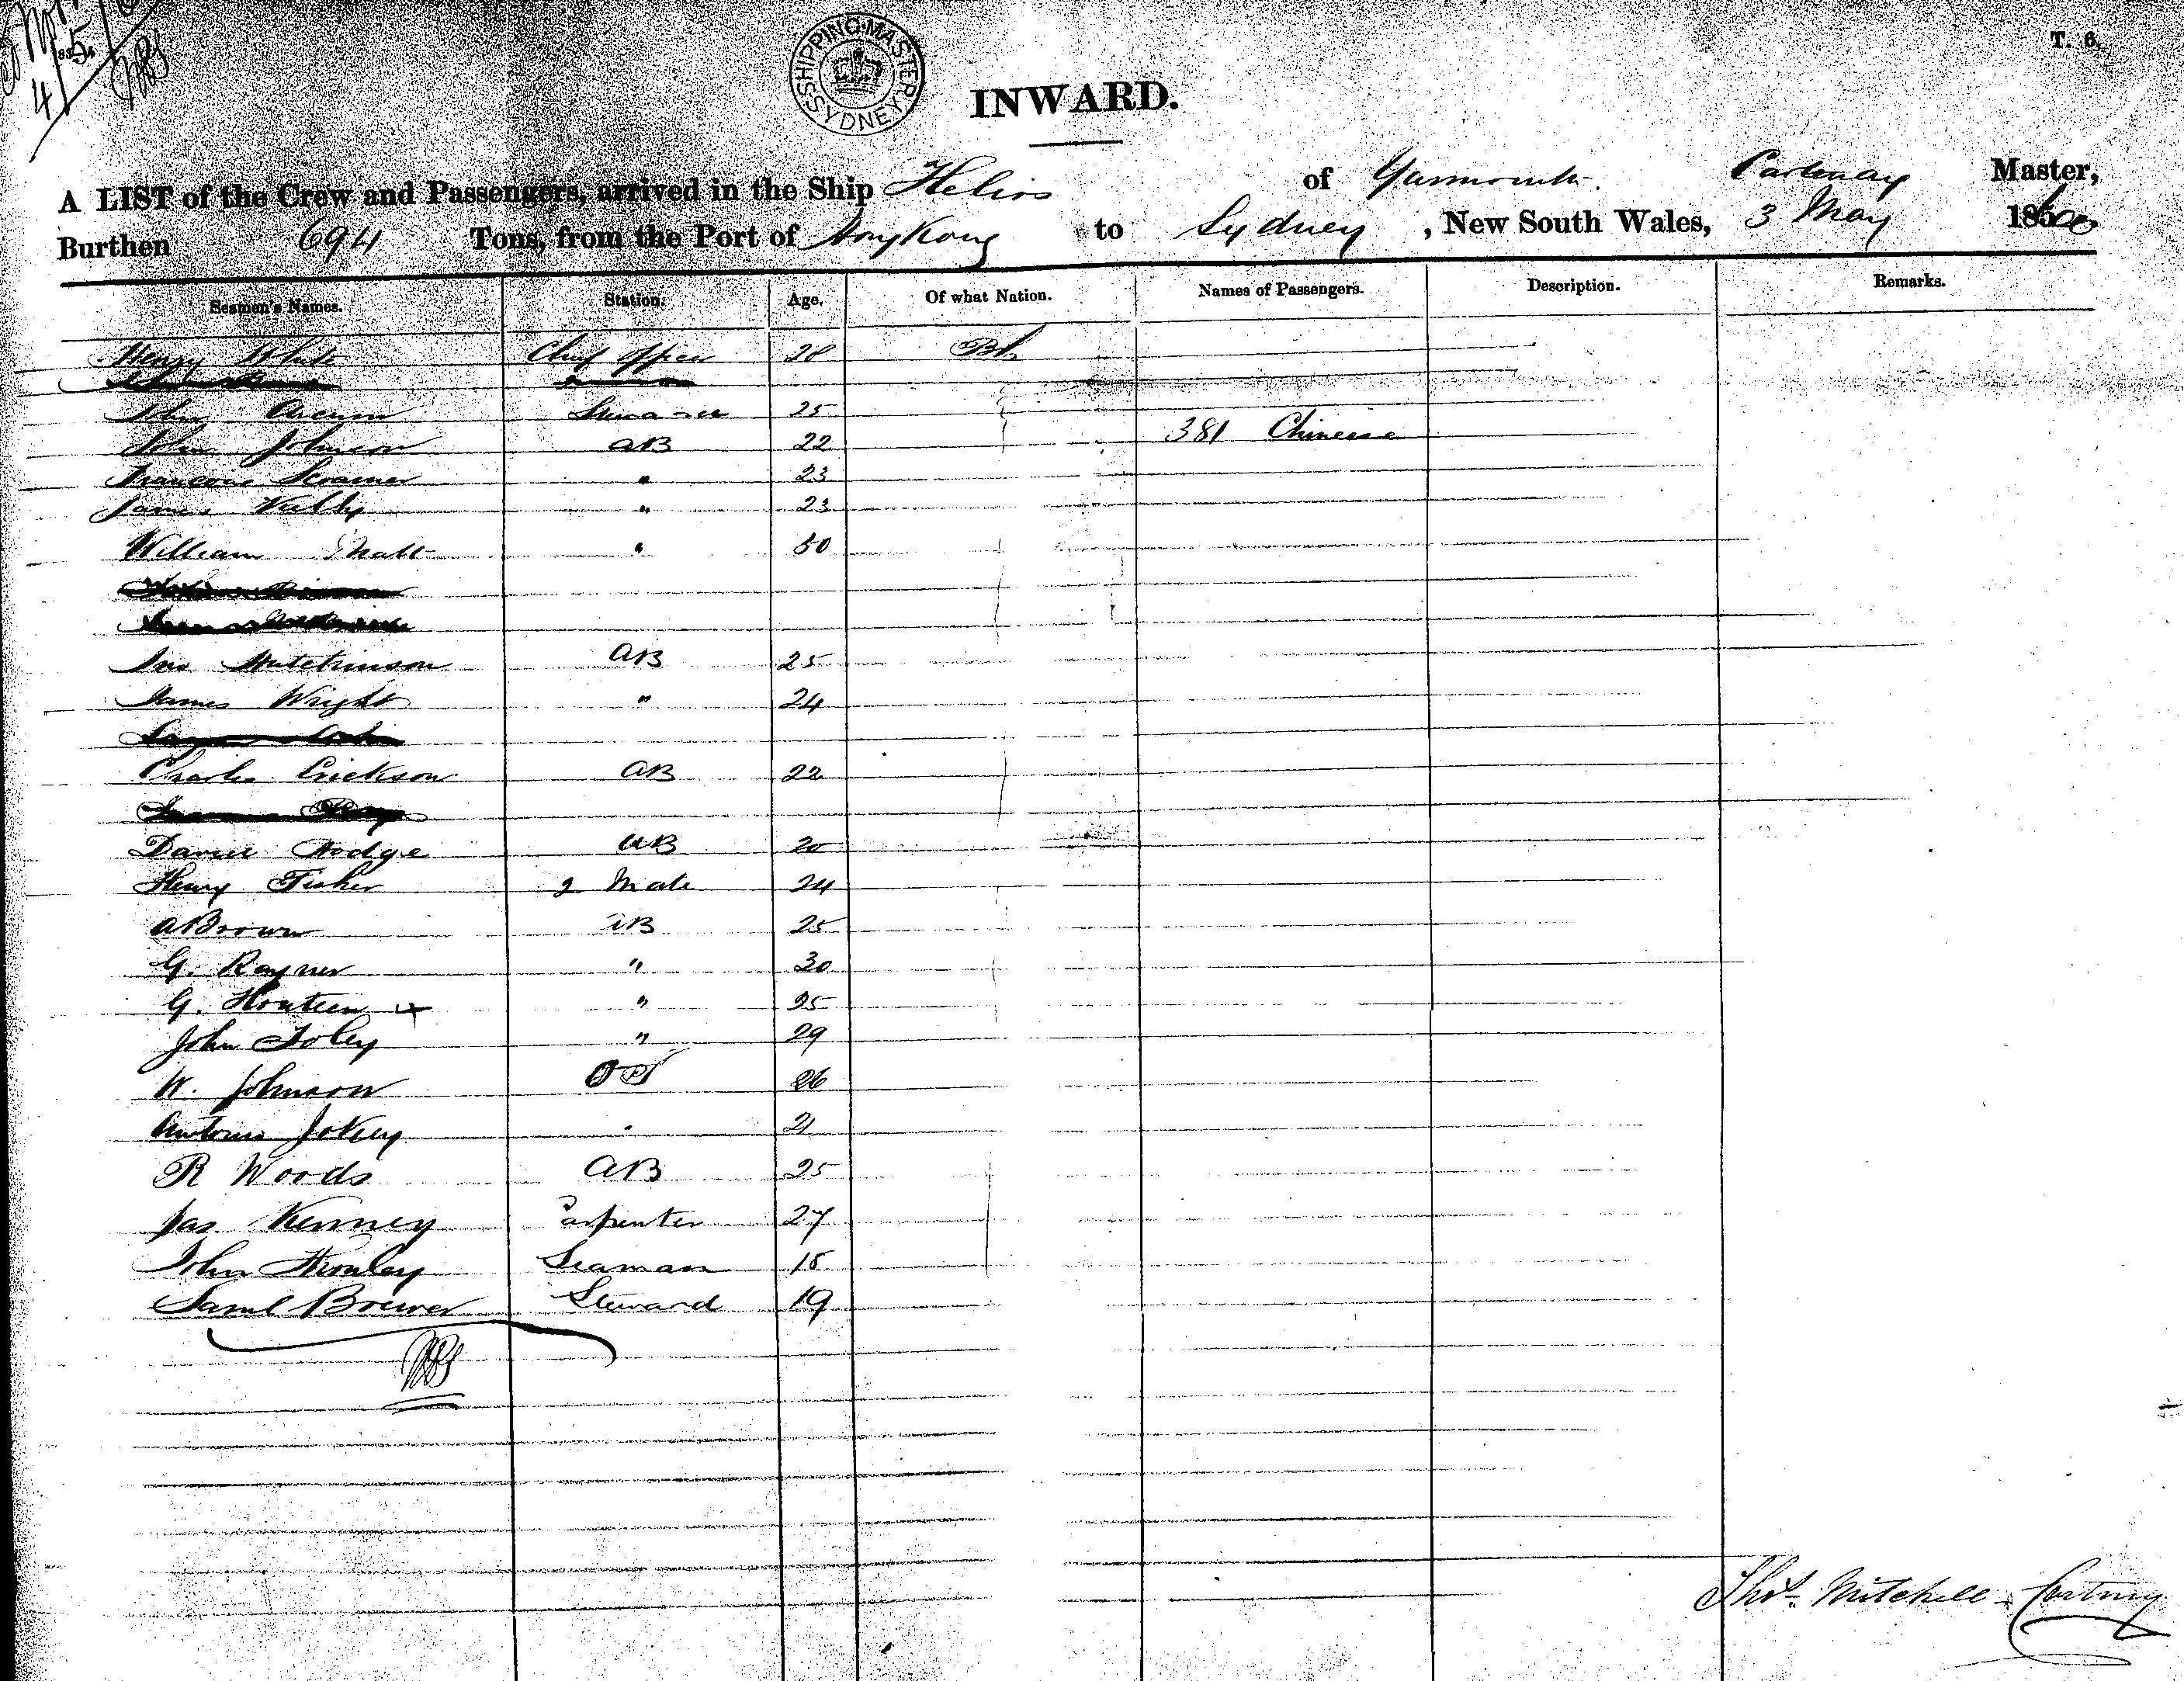 SHIPPING MASTER SYDNEY
T. 6.
INWARD.
A LIST of the Crew and Passengers, arrived in the Ship Helios of Yarmouth. Master,
Burthen 694 Tons, from the Port of Hong Kong to Sydney, New South Wales, 3 May 1860
Seamen's Names. Station. Age. Of what Nation. Names of Passengers. Description. Remarks.
Henry White Chief Officer 28 Bh
John 25
John Johnson AB 22 381 Chineese
" 23
James " 23
William " 50
Jno Hutchinson AB 25
James Wright " 24
Charles Erickson AB 22
Daniel Hodge AB 20
Henry Fisher 2 Mate 24
A Brown AB 25
G. Rayner " 30
G. " 25
John Foley " 29
W. Johnson OS 26
Antonio 21
R Woods AB 25
Jas Kenney Carpenter 27
John Seaman 18
Saml Brewer Steward 19
Thos. Mitchell Cortney